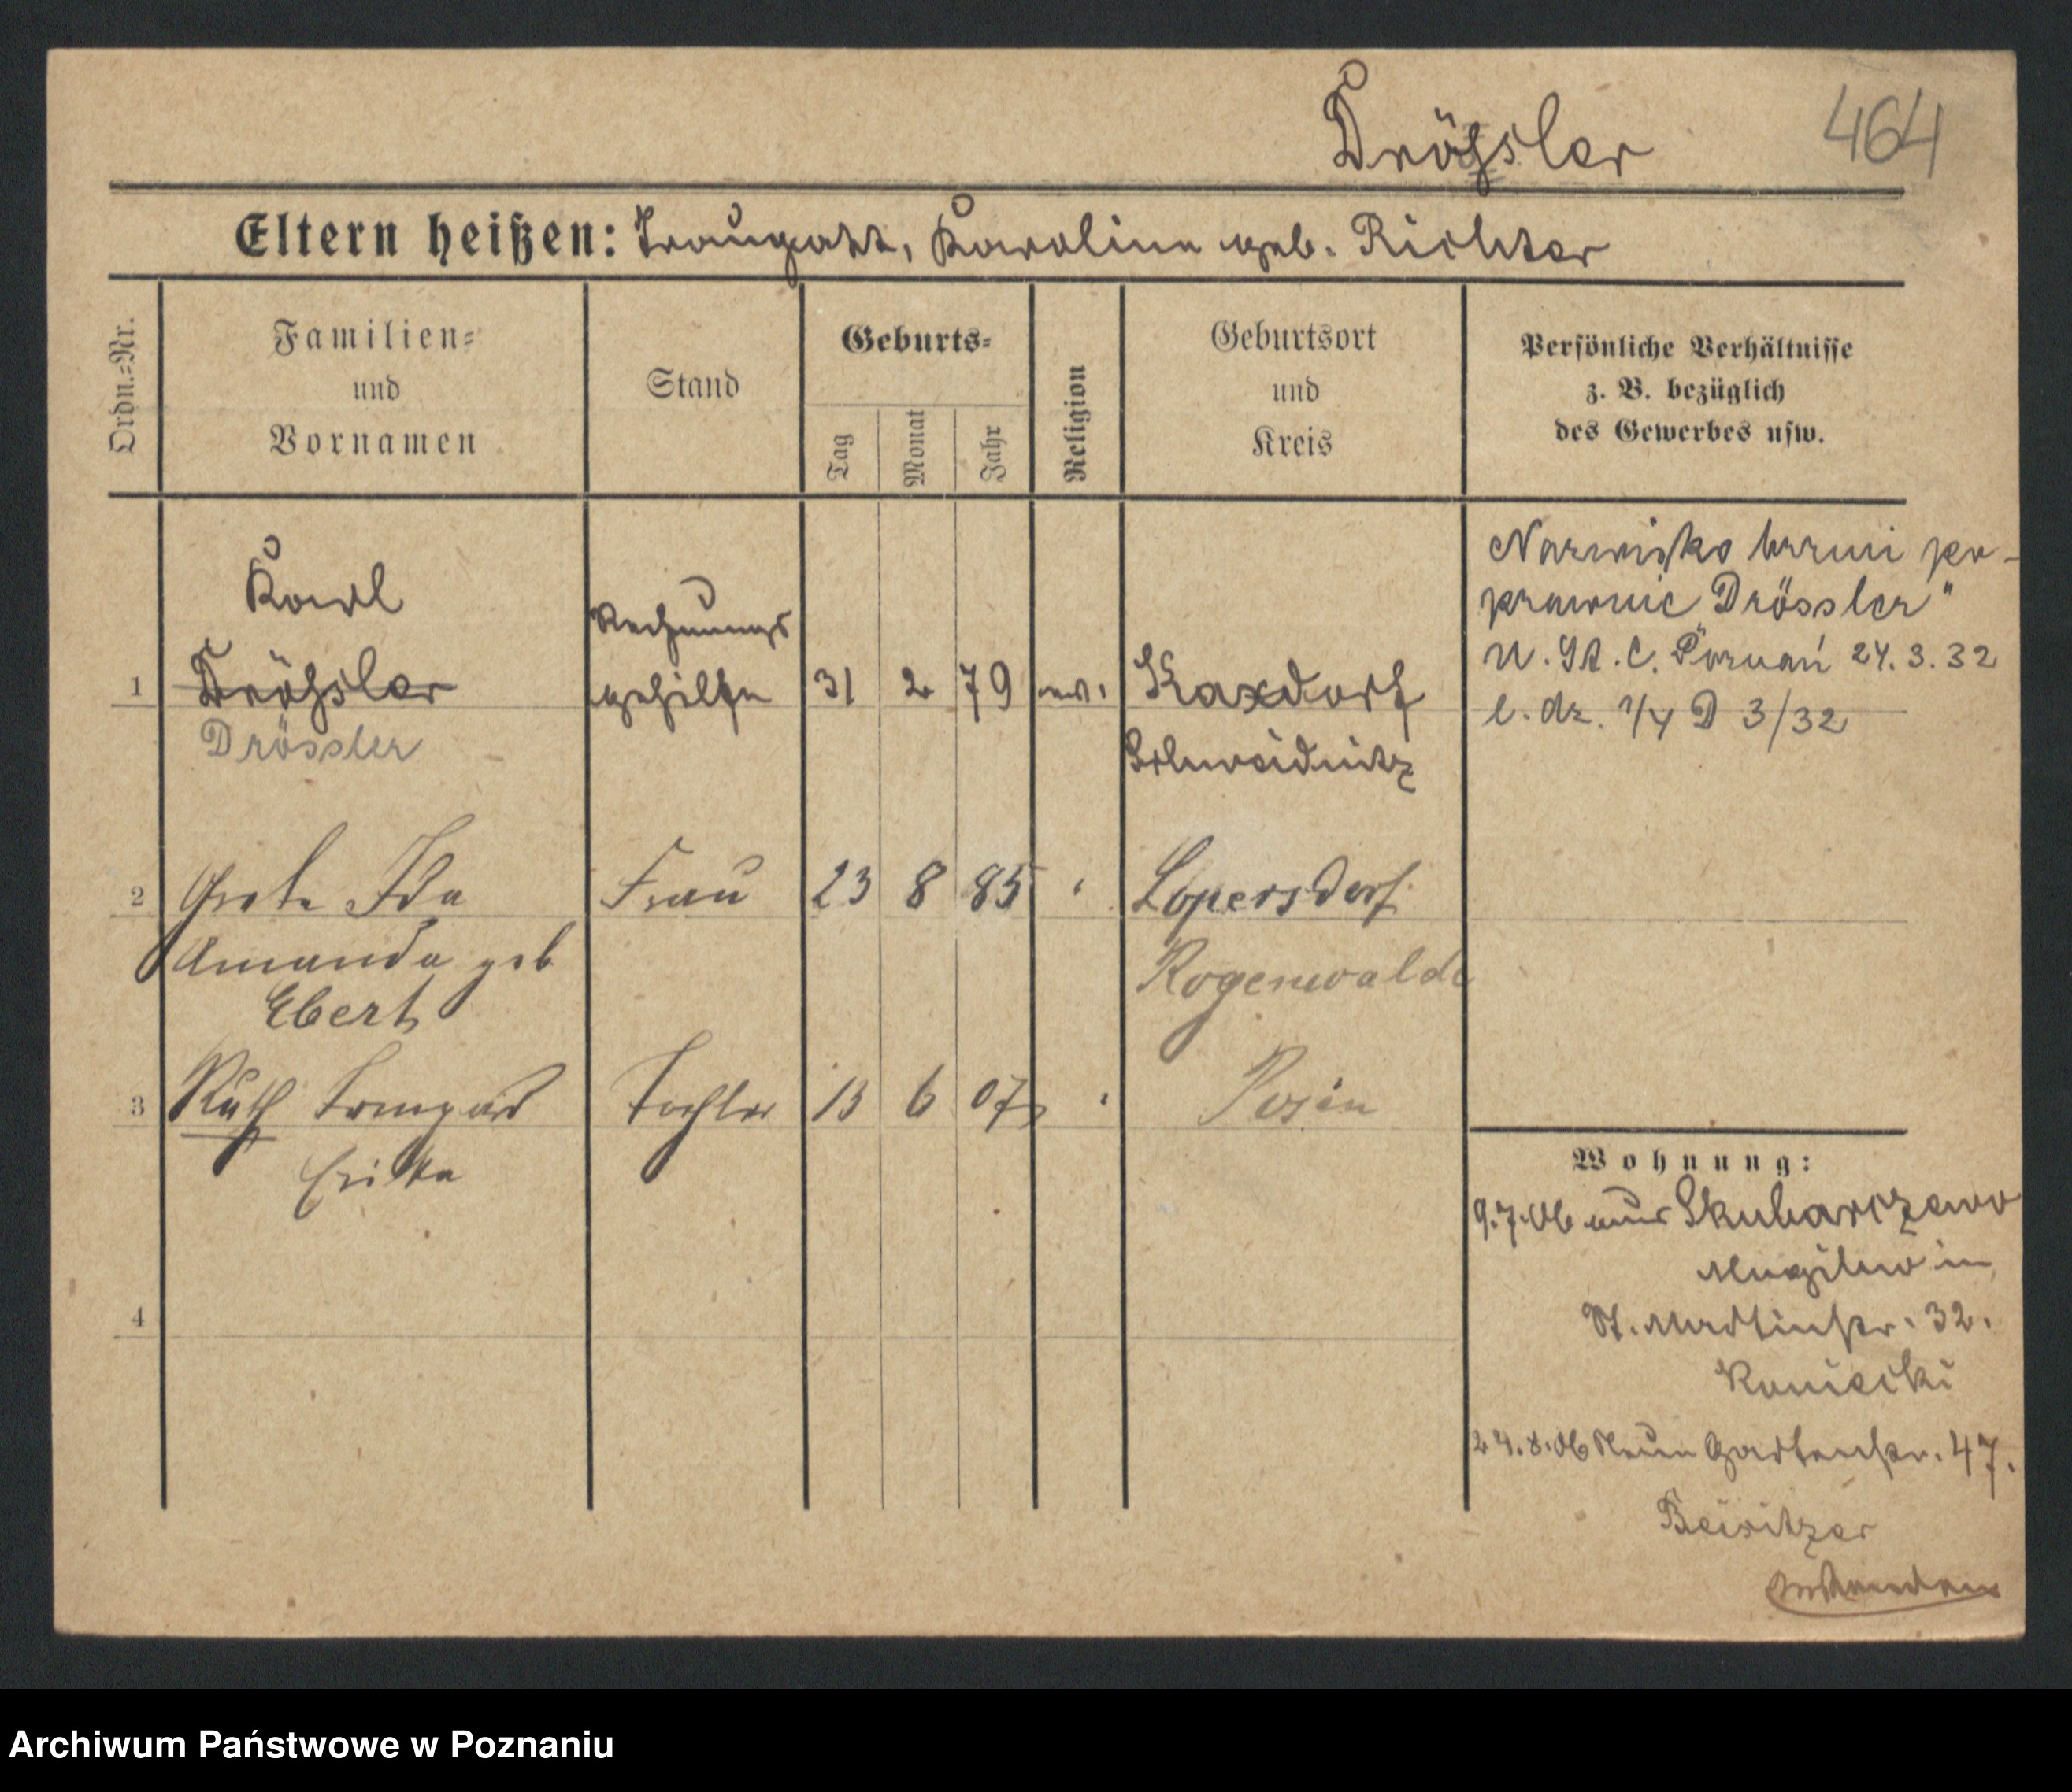 Drößler
464
Eltern heißen: Traugott, Karoline geb. Richter
Ordn.=Nr.
Familien=
und
Vornamen
Stand
Geburts=
Tag
Monat
Jahr
Religion
Geburtsort
und
Kreis
Persönliche Verhältnisse
z. B. bezüglich
des Gewerbes usw.
1
Karl
Drößler
Drössler
Rechnungs
gehilfe
31
2
79
ev.
Kaxdorf
Schweidnitz
Nazwisko brzmi po-
prawnie Drössler"
U. St. C. Poznań 24. 3. 32
l. dz. 1/4 D 3/32
2
Grete Ida
Amanda geb
Ebert
Frau
23
8
85
"
Lopersdorf
Rogenwalde
3
Ruth Irmgard
Erika
Tochter
13
6
07
"
Posen
Wohnung:
9.7.06 aus Skubarczewo
Mogilno in
St. Martinstr. 32.
Koniecki
24.8.06 Neue Gartenstr. 47.
Beisitzer
4
Archiwum Państwowe w Poznaniu